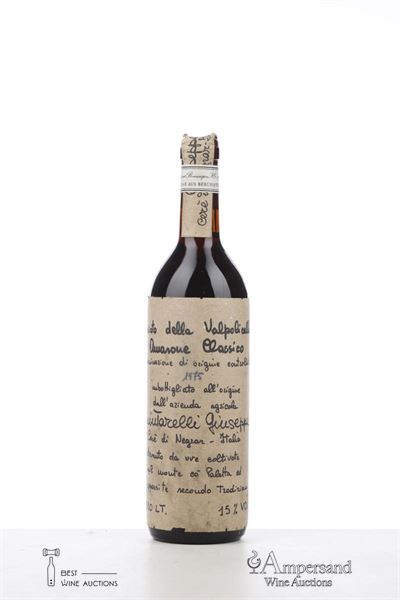 della Valpolicella
Amarone Classico
di origine controllata
1975
imbottigliato all'origine
dall'azienda agricola
Quintarelli Giuseppe
Cerè di Negrar - Italia
da uve coltivate
monte cà Paletta ed
secondo Tradizione
LT. 15% VOL
Cerè
BEST
WINE AUCTIONS
Ampersand
Wine Auctions